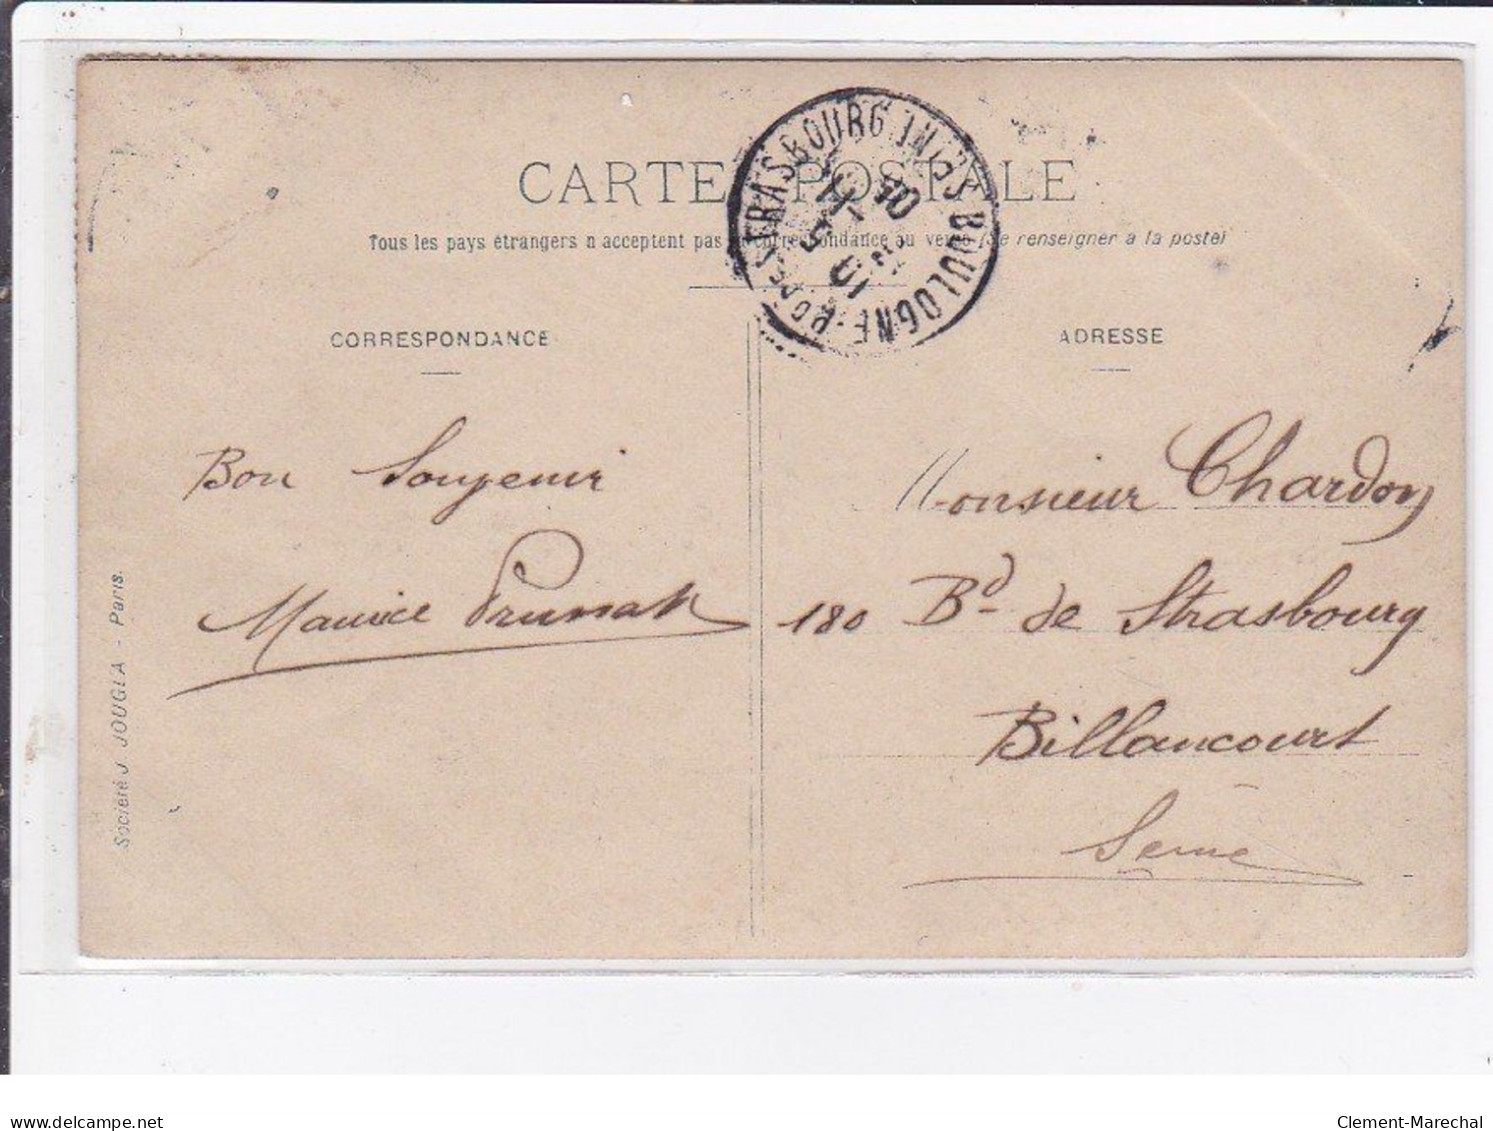 CARTE POSTALE
Tous les pays étrangers n'acceptent pas la correspondance au verso (Se renseigner à la poste)
CORRESPONDANCE
ADRESSE
BOULOGNE
STRASBOURG
Bon Souvenir
Maurice
Monsieur Chardon
180 Bd de Strasbourg
Billancourt
Seine
Société J JOUGLA - Paris.
delcampe.net
Clement-Marechal